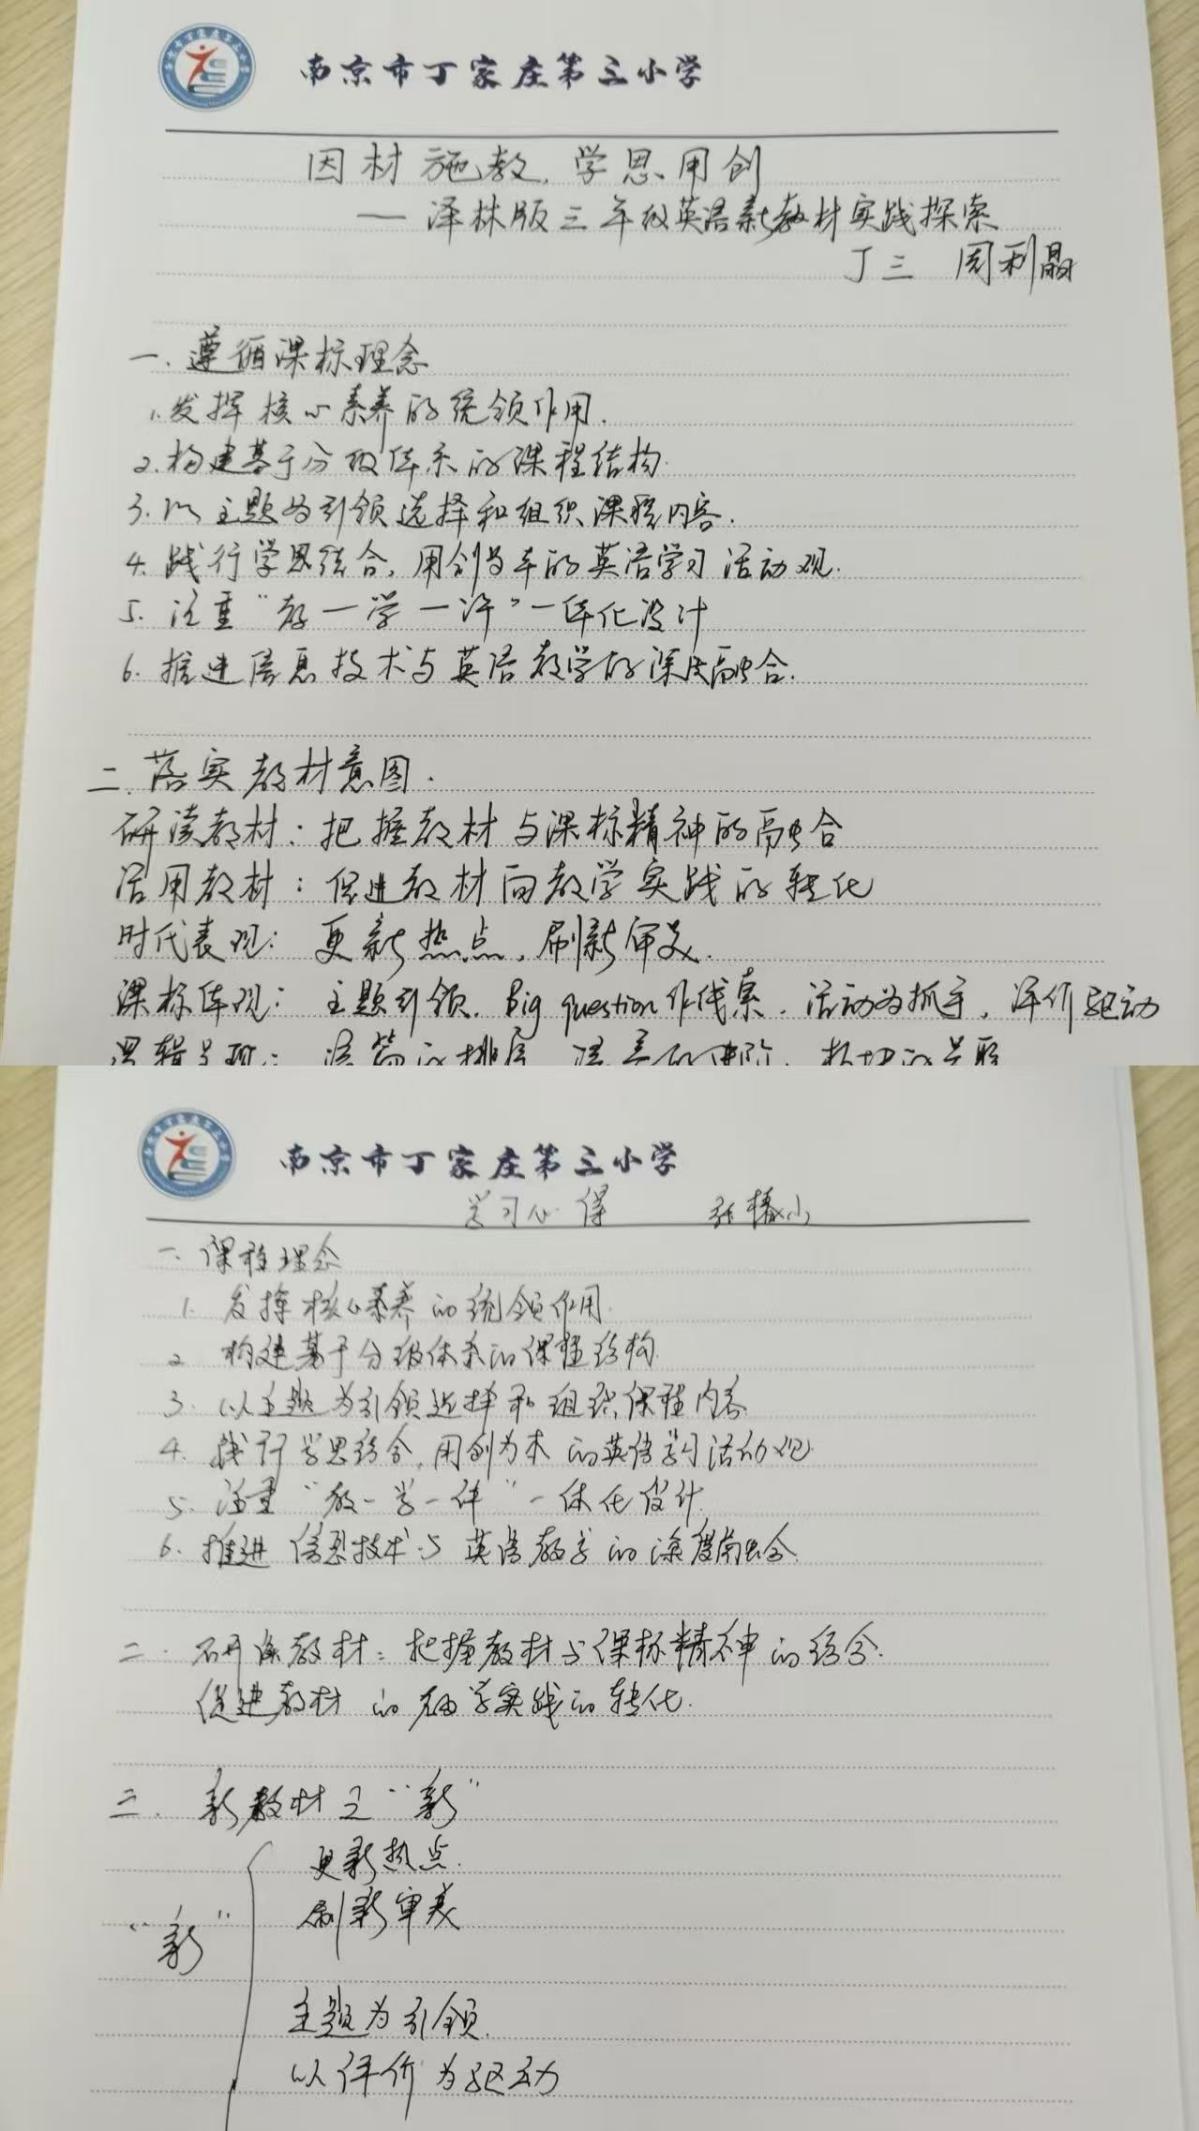 南京市丁家庄第三小学
因材施教,学思用创
—译林版三年级英语新教材实践探索
丁三 周利晶
一.遵循课标理念
1.发挥核心素养的统领作用.
2.构建基于分级体系的课程结构.
3.以主题为引领选择和组织课程内容.
4.践行学思结合,用创为本的英语学习活动观.
5.注重“教—学—评”一体化设计
6.推进信息技术与英语教学的深度融合.
二.落实教材意图.
研读教材:把握教材与课标精神的融合
活用教材:促进教材向教学实践的转化
时代表现:更新热点,刷新审美.
课标体现:主题引领.Big question作线索.活动为抓手,评价驱动
逻辑呈现:语篇的排序
南京市丁家庄第三小学
学习心得
一.课程理念
1.发挥核心素养的统领作用.
2 构建基于分级体系的课程结构.
3.以主题为引领选择和组织课程内容
4.践行学思结合,用创为本的英语学习活动观.
5.注重“教—学—评”一体化设计.
6.推进信息技术与英语教学的深度融合.
二.研读教材:把握教材与课标精神的结合.
促进教材的教学实践的转化.
三.新教材之“新”
更新热点.
刷新审美
“新”
主题为引领.
以评价为驱动